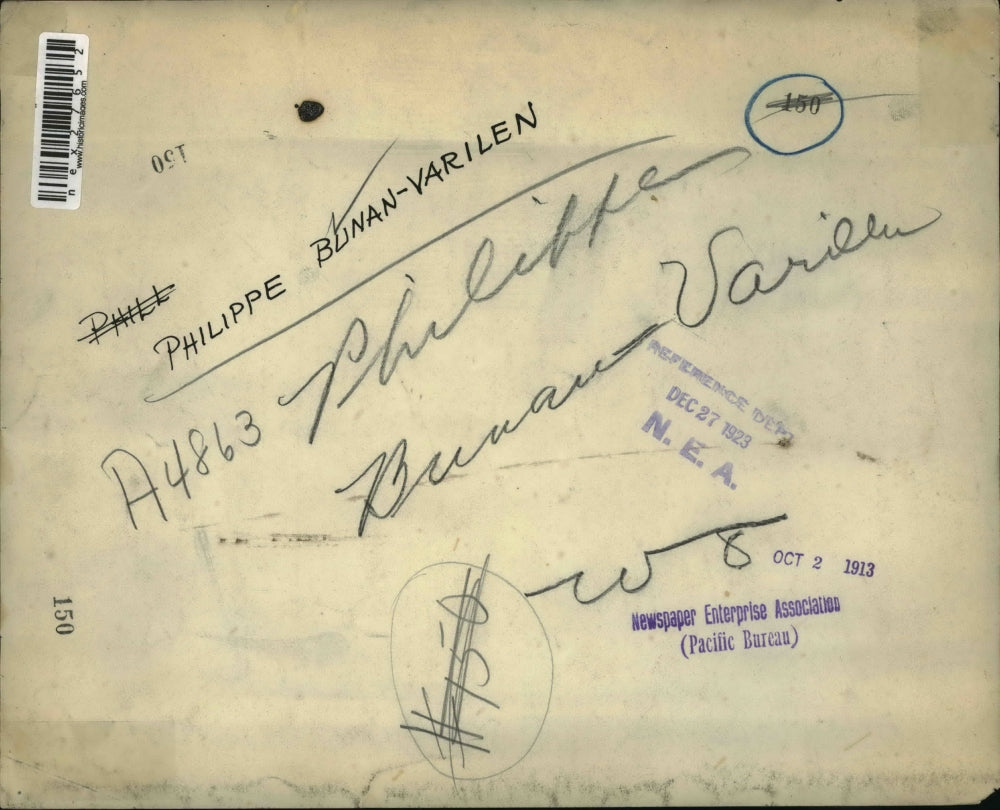 www.historicimages.com
150
150
PHILL
PHILIPPE BUNAN-VARILEN
Philippe
Bunau Varillen
A4863
REFERENCE DEPT
DEC 27 1923
N. E. A.
OCT 2 1913
Newspaper Enterprise Association
(Pacific Bureau)
150
#150